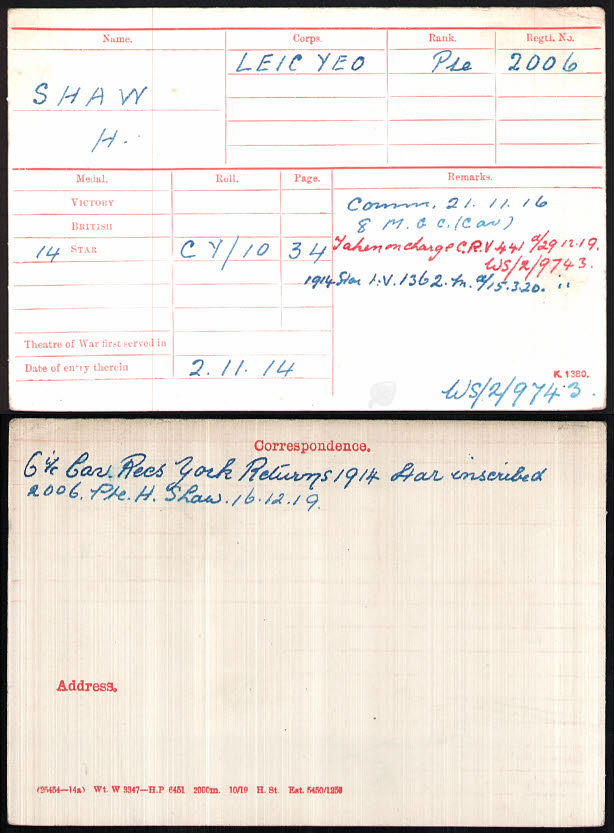 Name. Corps. Rank. Regtl. No.
LEIC YEO Pte 2006
SHAW
H.
Medal. Roll. Page. Remarks.
VICTORY
BRITISH
14 STAR CY/10 34
Comm. 21.11.16
8 M.G.C. (Cav)
Taken on charge C.R.V 441 d/29.12.19.
WS/2/9743.
1914 Star I.V. 1362. d/15.3.20. "
Theatre of War first served in
Date of entry therein 2.11.14
K. 1380.
WS/2/9743.
Correspondence.
O i/c Cav. Recs York Returns 1914 Star inscribed
2006. Pte. H. Shaw. 16.12.19.
Address.
(25454—14a) Wt. W 3347—H.P 6451 2000m. 10/19 H. St. Est. 5450/1258